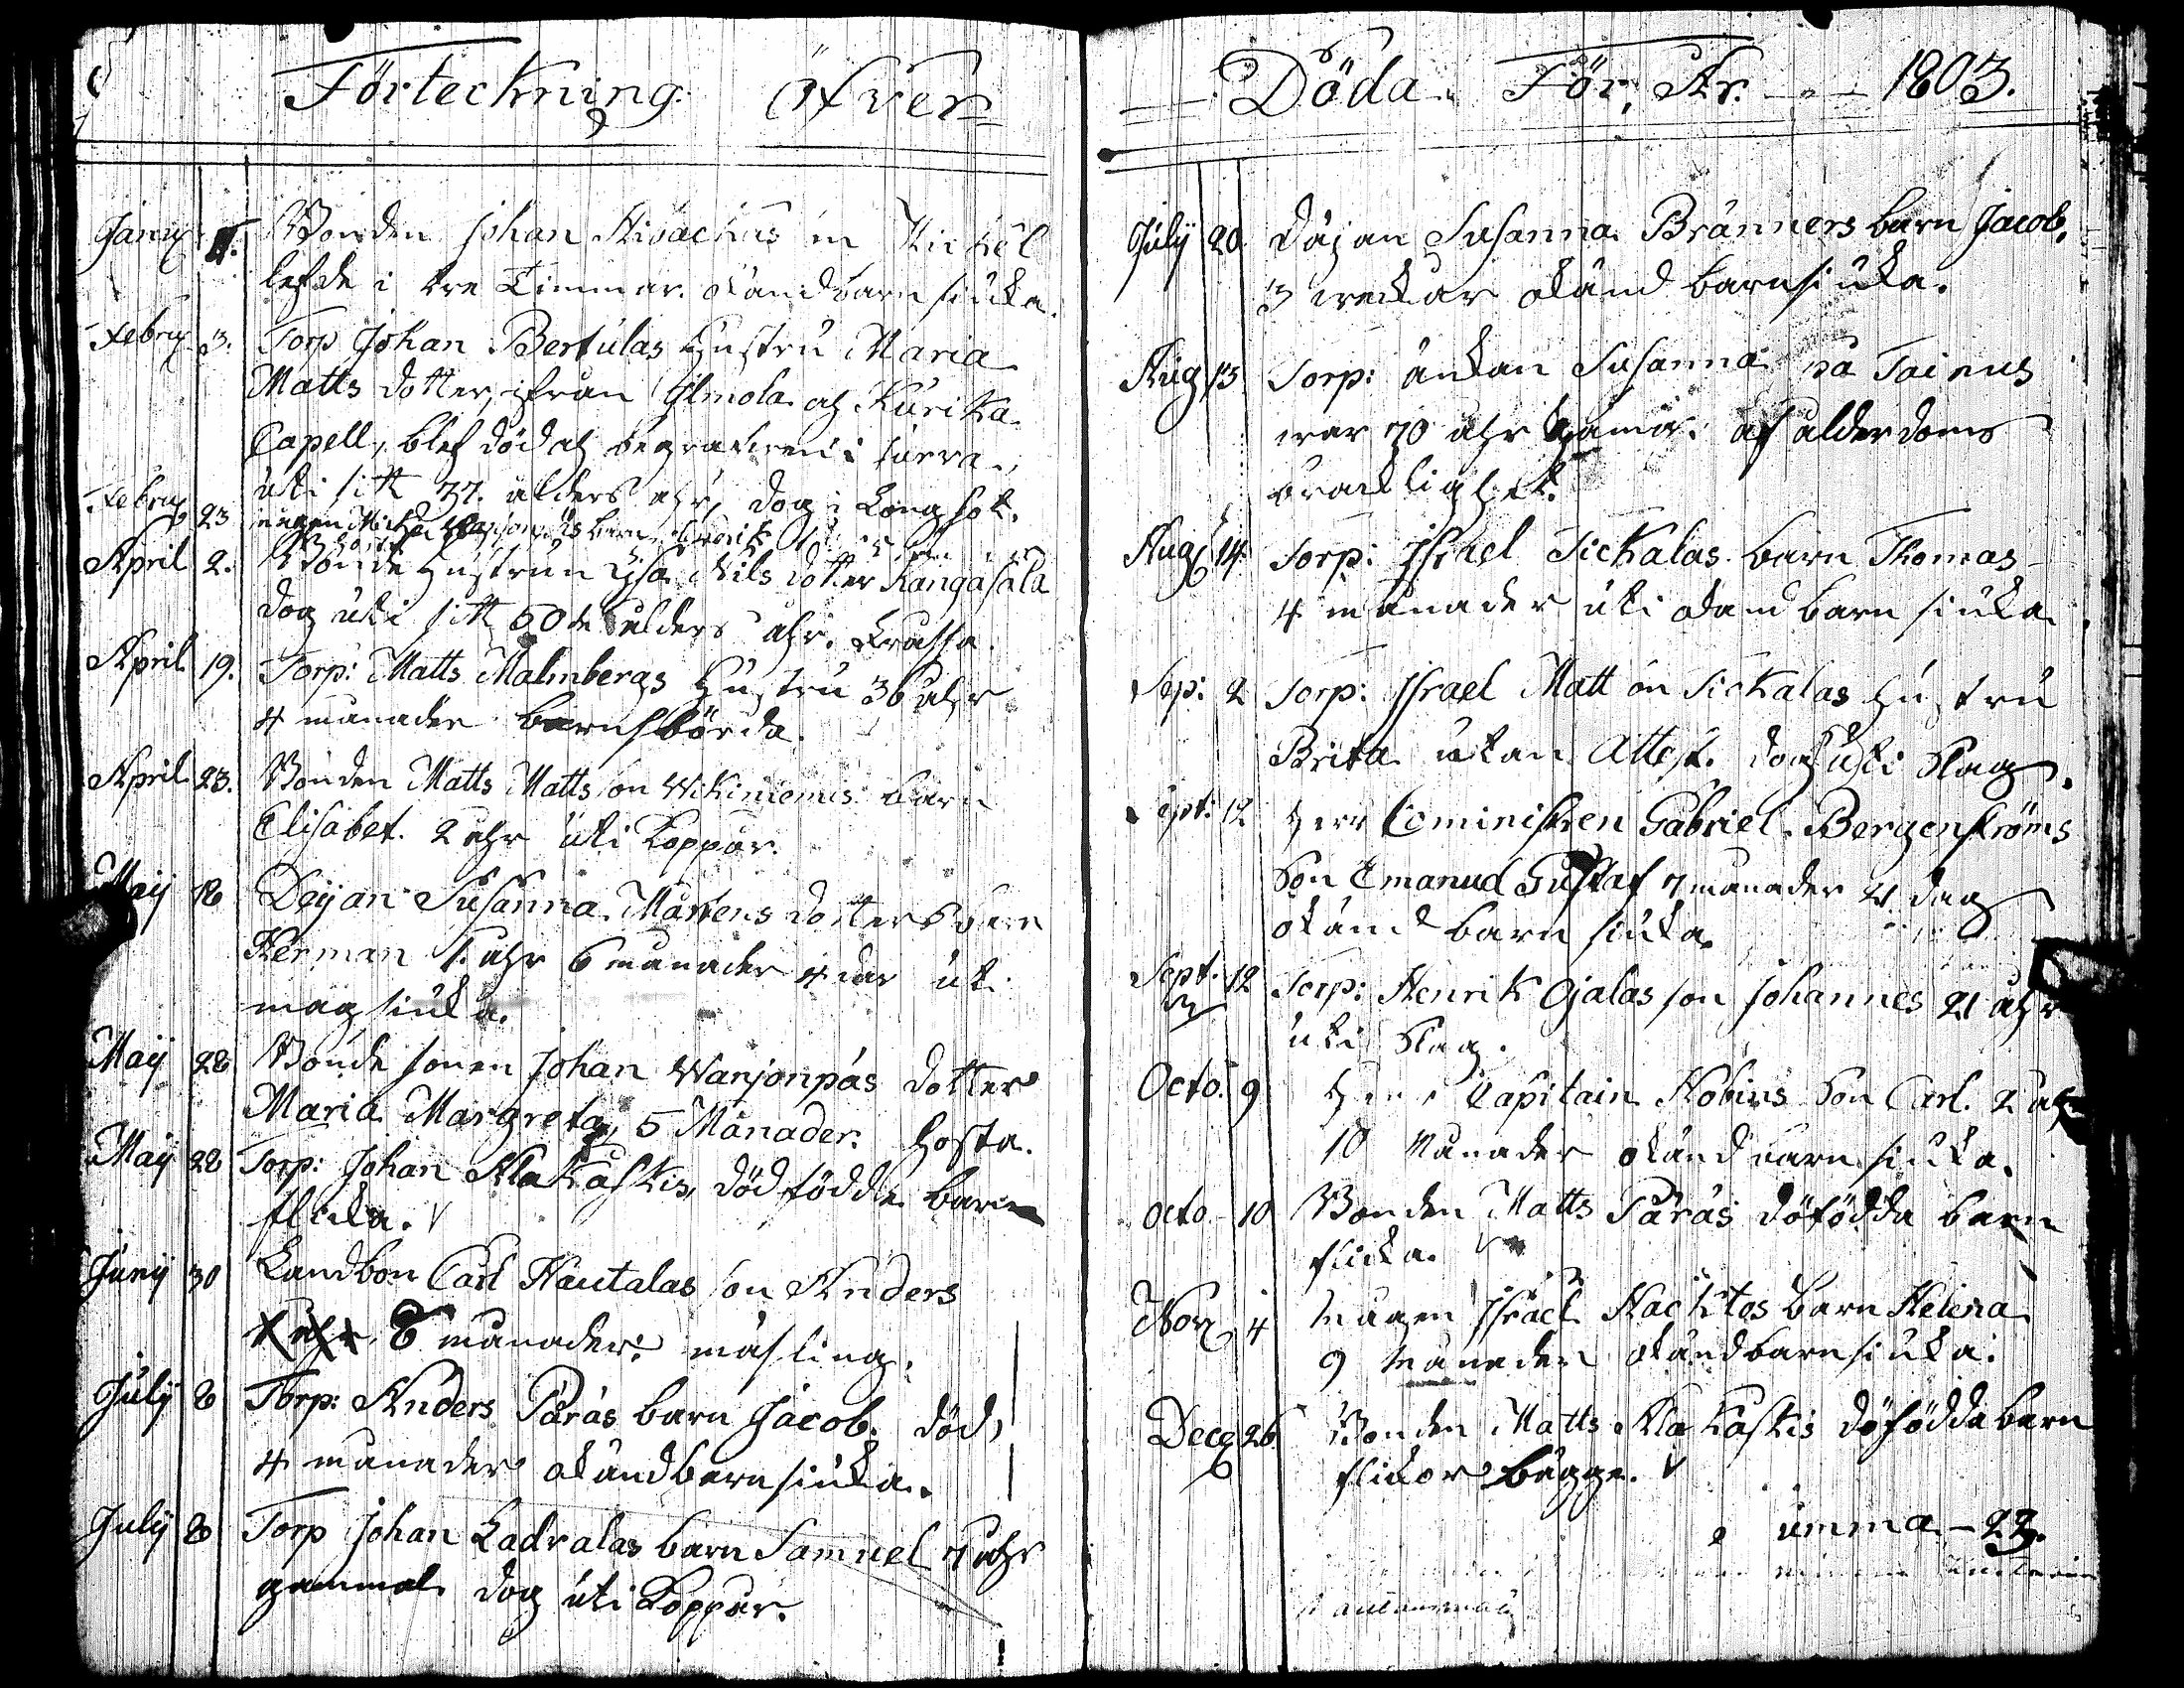 Förteckning öfver
Januy 4. Bonden Johan Kivachus son Mickel
lefde i tre Timmar. okänd barnsiuka.
Febry 3. Torp Johan Bertulas Hustru Maria
Matts dotter, ifrån Ilmola och Kurika
Capell, blef död och begrafven i
uti sitt 77. ålders åhr, dog i Lungsot.
Febry 23 barn
April 2. Bonde Hustrun Lisa Nils dotter Kangasala
dog uti sitt 50de ålders åhr.
April 19. Torp: Matts Malmbergs Hustru 36 åhr
4 månader barnsbörda.
April 23. Bonden Matts Mattson Wikiniemis barn
Elisabet. 2 åhr uti Koppor.
Maij 18 Deijan Susanna Mårtens dotters barn
Herman 1 åhr 6 månader 4 dar uti
magsiuka.
Maij 28 Bonde sonen Johan Warjonpäs dotter
Maria Margreta, 5 Månader. Hosta.
Maij 28 Torp: Johan Alakaskis, dödfödde barn
flicka. V
Junij 30 Landbon Carl Hautalas son Anders
8 månader. mäsling.
July 8 Torp: Anders Paras barn Jacob. död,
4 månader okänd barnsiuka.
July 8 Torp Johan Ladvalas barn Samuel 7 åhr
gammal dog uti Koppor.
Döda För År 1803.
July 20 Däjan Susanna Bränners barn Jacob,
3 veckor okänd barnsiuka.
Aug 13 Torp: änkan Susanna på Tainus
var 70 åhr gamal. af ålderdoms
bräcklighet.
Aug 14 Torp: Israel Sickalas barn Thomas
4 månader uti okänd barnsiuka
Sep: 2 Torp: Israel Mattson Sickalas Hustru
Brita utan Attest. dog uti Slag.
Sept: 12 Herr Cominisren Gabriel Bergenströms
Son Emanuel Gustaf 7 månader 21 dag
okänd barnsiuka.
Sept. 12 Torp: Henrik Ojalas son Johannes 21 åhr
uti Slag.
Octo. 9 Herr Capitain Kobins Son Carl. 2 åhr
10 Månader okänd barnsiuka.
Octo - 10 Bonden Matts Paras döfödda barn
flicka. V
Nov 4 Israel Nackitos barn Helena
9 Månader okänd barnsiuka.
Dece 26 Bonden Matts Alakaskis döfödda barn
flickor bägge. V
umma - 23.